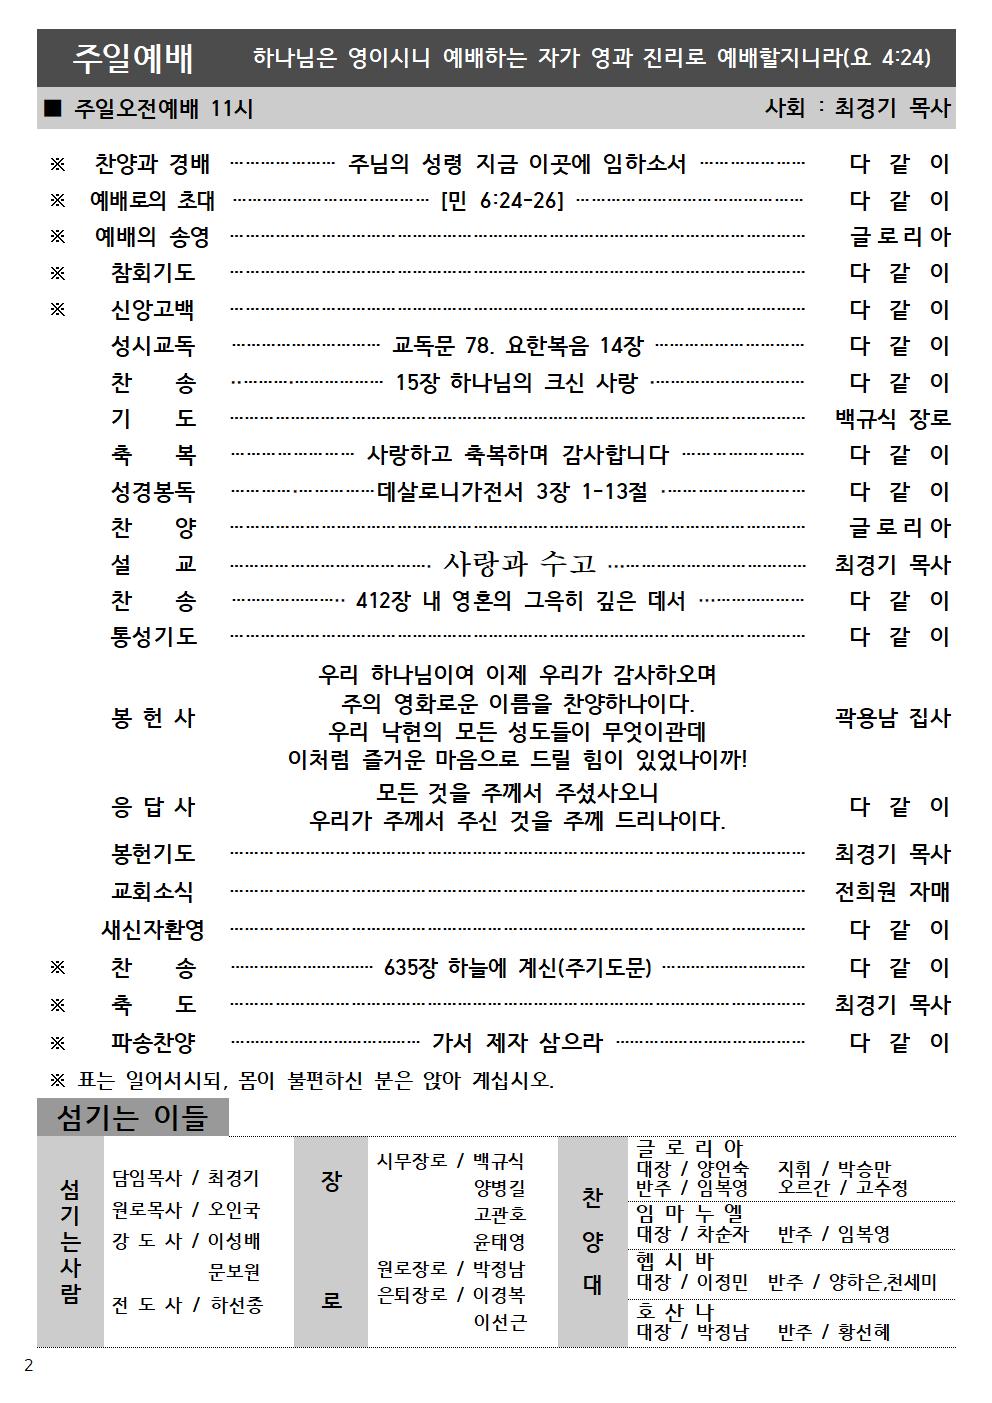 주일예배 하나님은 영이시니 예배하는 자가 영과 진리로 예배할지니라(요 4:24)
■ 주일오전예배 11시 사회 : 최경기 목사
※ 찬양과 경배 ………………… 주님의 성령 지금 이곳에 임하소서 ………………… 다 같 이
※ 예배로의 초대 ………………………………… [민 6:24-26] ……………………………………… 다 같 이
※ 예배의 송영 …………………………………………………………………………………………………… 글로리아
※ 참회기도 …………………………………………………………………………………………………… 다 같 이
※ 신앙고백 …………………………………………………………………………………………………… 다 같 이
성시교독 ………………………… 교독문 78. 요한복음 14장 ………………………… 다 같 이
찬 송 ………………………… 15장 하나님의 크신 사랑 ………………………… 다 같 이
기 도 …………………………………………………………………………………………………… 백규식 장로
축 복 …………………… 사랑하고 축복하며 감사합니다 …………………… 다 같 이
성경봉독 ………………………데살로니가전서 3장 1-13절 ……………………… 다 같 이
찬 양 …………………………………………………………………………………………………… 글로리아
설 교 ………………………………… 사랑과 수고 ………………………………… 최경기 목사
찬 송 ………………… 412장 내 영혼의 그윽히 깊은 데서 ………………… 다 같 이
통성기도 …………………………………………………………………………………………………… 다 같 이
우리 하나님이여 이제 우리가 감사하오며
주의 영화로운 이름을 찬양하나이다.
봉 헌 사 곽용남 집사
우리 낙현의 모든 성도들이 무엇이관데
이처럼 즐거운 마음으로 드릴 힘이 있었나이까!
모든 것을 주께서 주셨사오니
응 답 사 다 같 이
우리가 주께서 주신 것을 주께 드리나이다.
봉헌기도 …………………………………………………………………………………………………… 최경기 목사
교회소식 …………………………………………………………………………………………………… 전희원 자매
새신자환영 …………………………………………………………………………………………………… 다 같 이
※ 찬 송 ……………………… 635장 하늘에 계신(주기도문) ……………………… 다 같 이
※ 축 도 …………………………………………………………………………………………………… 최경기 목사
※ 파송찬양 ……………………………… 가서 제자 삼으라 ……………………………… 다 같 이
※ 표는 일어서시되, 몸이 불편하신 분은 앉아 계십시오.
섬기는 이들
섬기는사람
담임목사 / 최경기
원로목사 / 오인국
강 도 사 / 이성배
문보원
전 도 사 / 하선종
장 로
시무장로 / 백규식
양병길
고관호
윤태영
원로장로 / 박정남
은퇴장로 / 이경복
이선근
찬양대
글 로 리 아
대장 / 양언숙 지휘 / 박승만
반주 / 임복영 오르간 / 고수정
임 마 누 엘
대장 / 차순자 반주 / 임복영
헵 시 바
대장 / 이정민 반주 / 양하은,천세미
호 산 나
대장 / 박정남 반주 / 황선혜
2